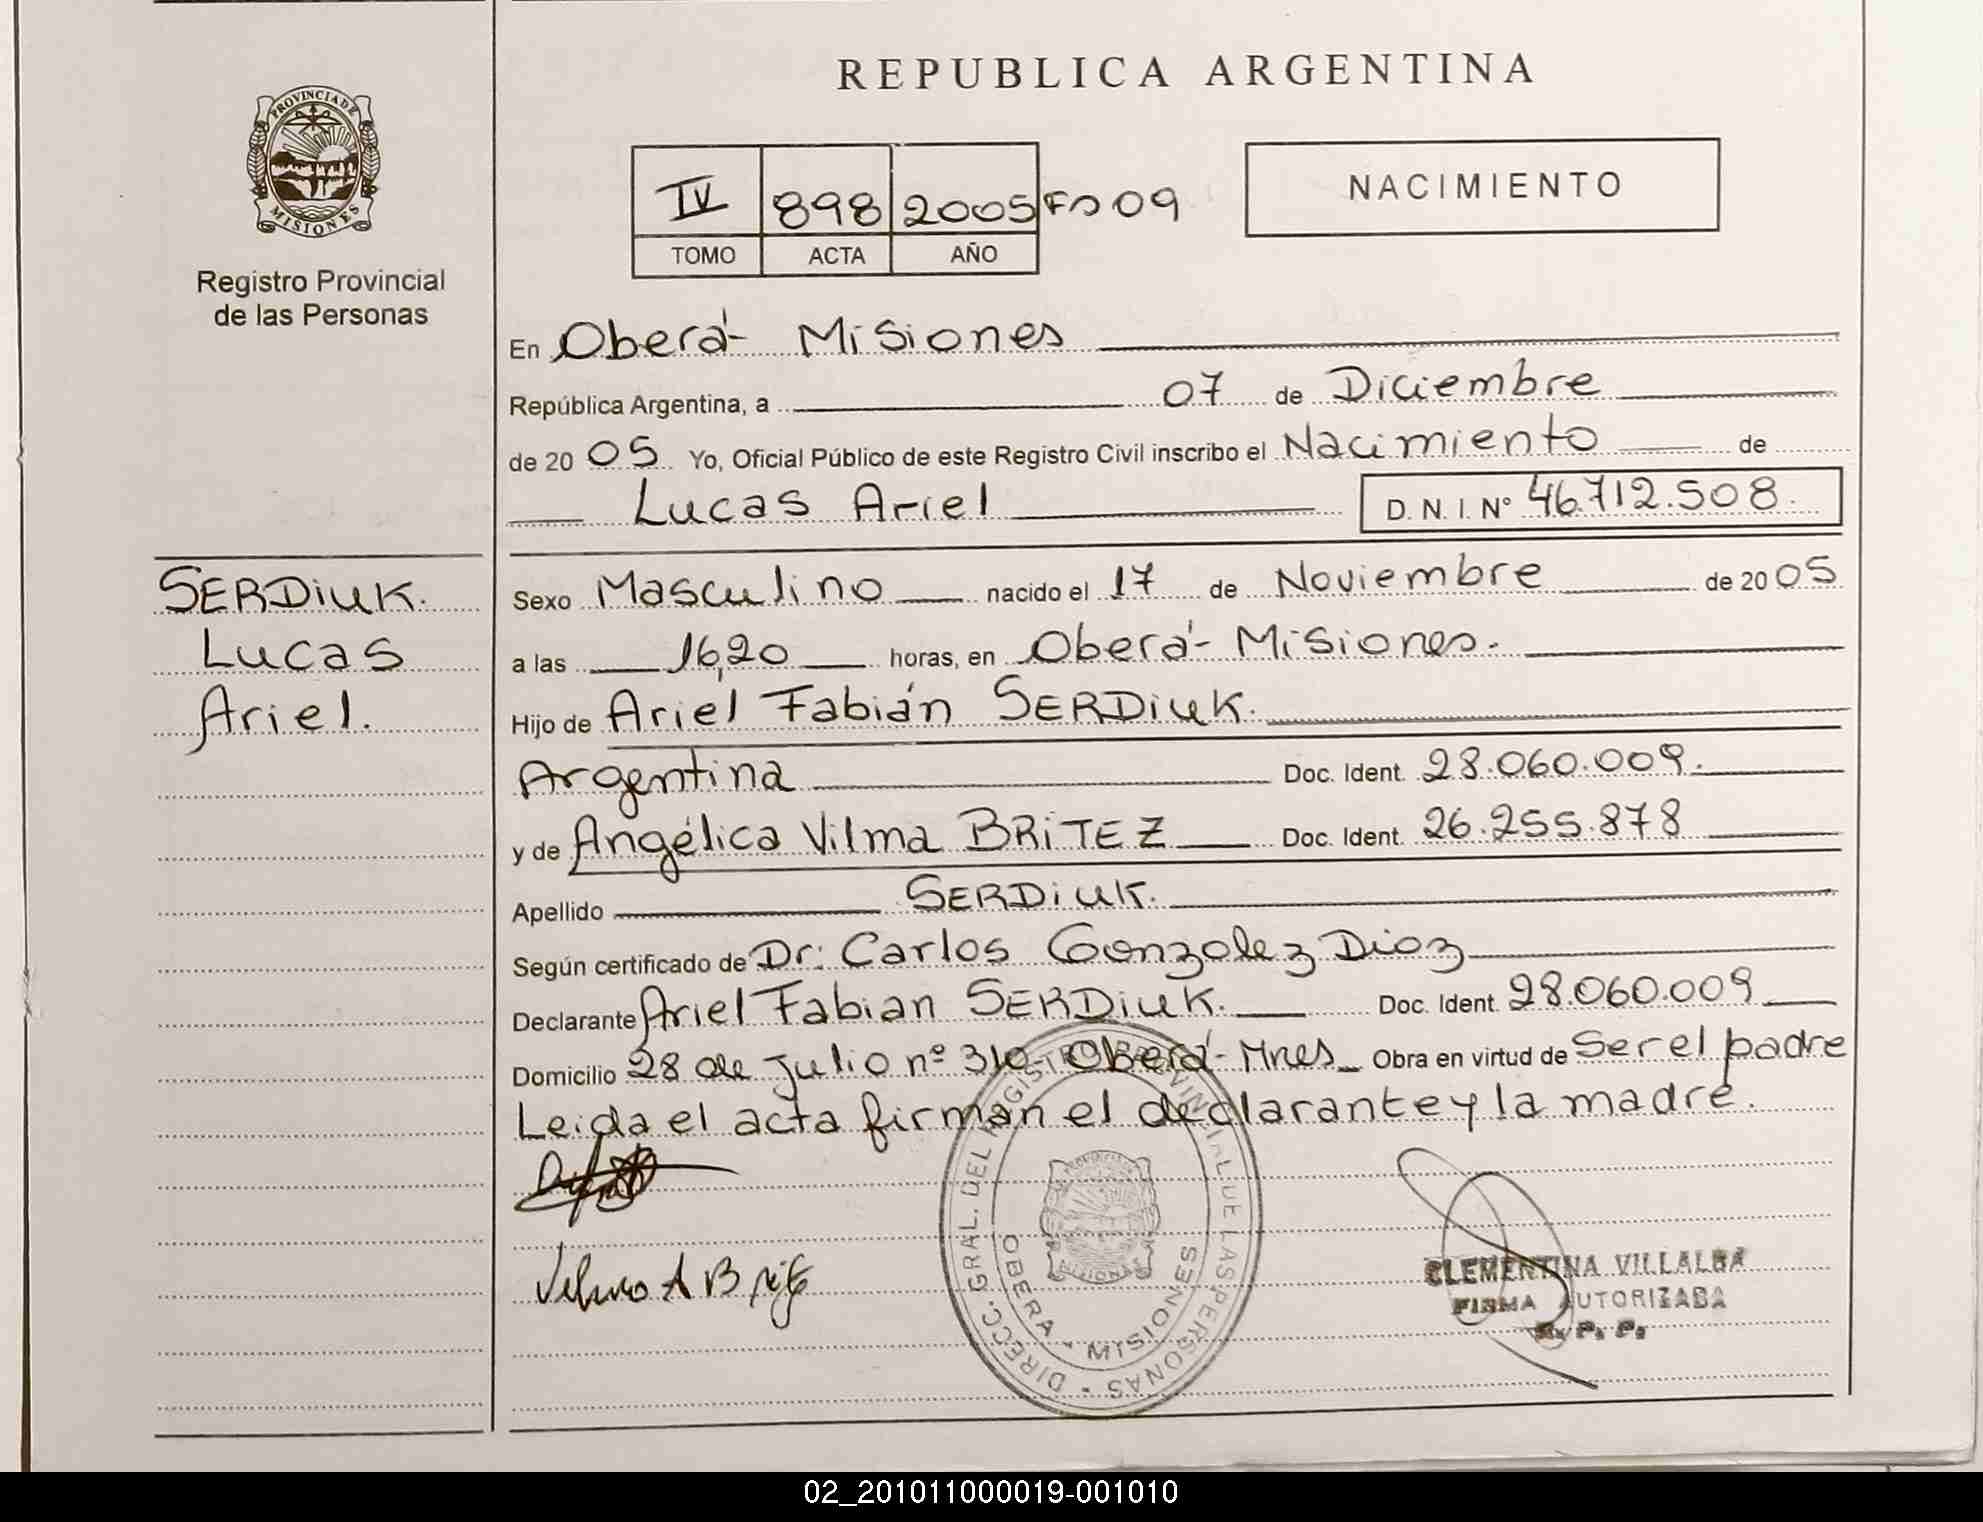 REPUBLICA ARGENTINA
PROVINCIA DE
MISIONES
Registro Provincial
de las Personas
IV 898 2005 Fo 09
TOMO ACTA AÑO
NACIMIENTO
En Oberá- Misiones
República Argentina, a 07 de Diciembre
de 20 05 Yo, Oficial Público de este Registro Civil inscribo el Nacimiento de
Lucas Ariel D. N. I. N° 46.712.508.
SERDIUK.
Lucas
Ariel.
Sexo Masculino nacido el 17 de Noviembre de 20 05
a las 16,20 horas, en Oberá- Misiones.
Hijo de Ariel Fabián SERDIUK.
Argentina Doc. Ident. 28.060.009.
y de Angélica Vilma BRITEZ Doc. Ident. 26.255.878
Apellido SERDIUK.
Según certificado de Dr: Carlos Gonzalez Diaz
Declarante Ariel Fabian SERDIUK. Doc. Ident. 28.060.009
Domicilio 28 de Julio nº 310- Oberá- Mnes Obra en virtud de Ser el padre
Leida el acta firman el declarante y la madre.
DIRECC. GRAL. DEL REGISTRO PROVINCIAL DE LAS PERSONAS
OBERA - MISIONES
MISIONES
CLEMENTINA VILLALBA
FIRMA AUTORIZADA
R. P. P.
02_201011000019-001010